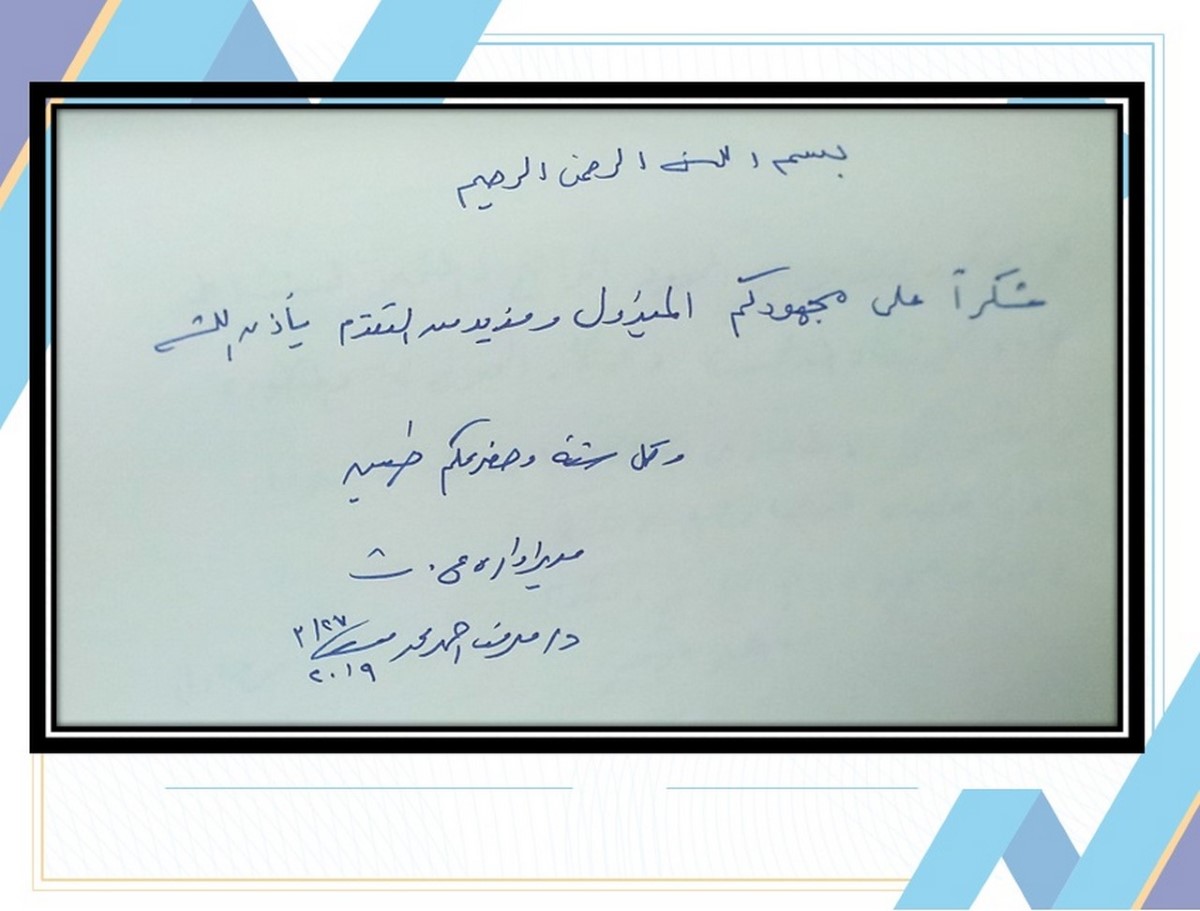 بسم الله الرحمن الرحيم
شكراً على مجهودكم المبذول ومزيد من التقدم بأذن الله
وكل سنة وحضرتكم طيبين
مدير ادارة
د/ مرفت احمد محمد
٢/٢٧
٢٠١٩